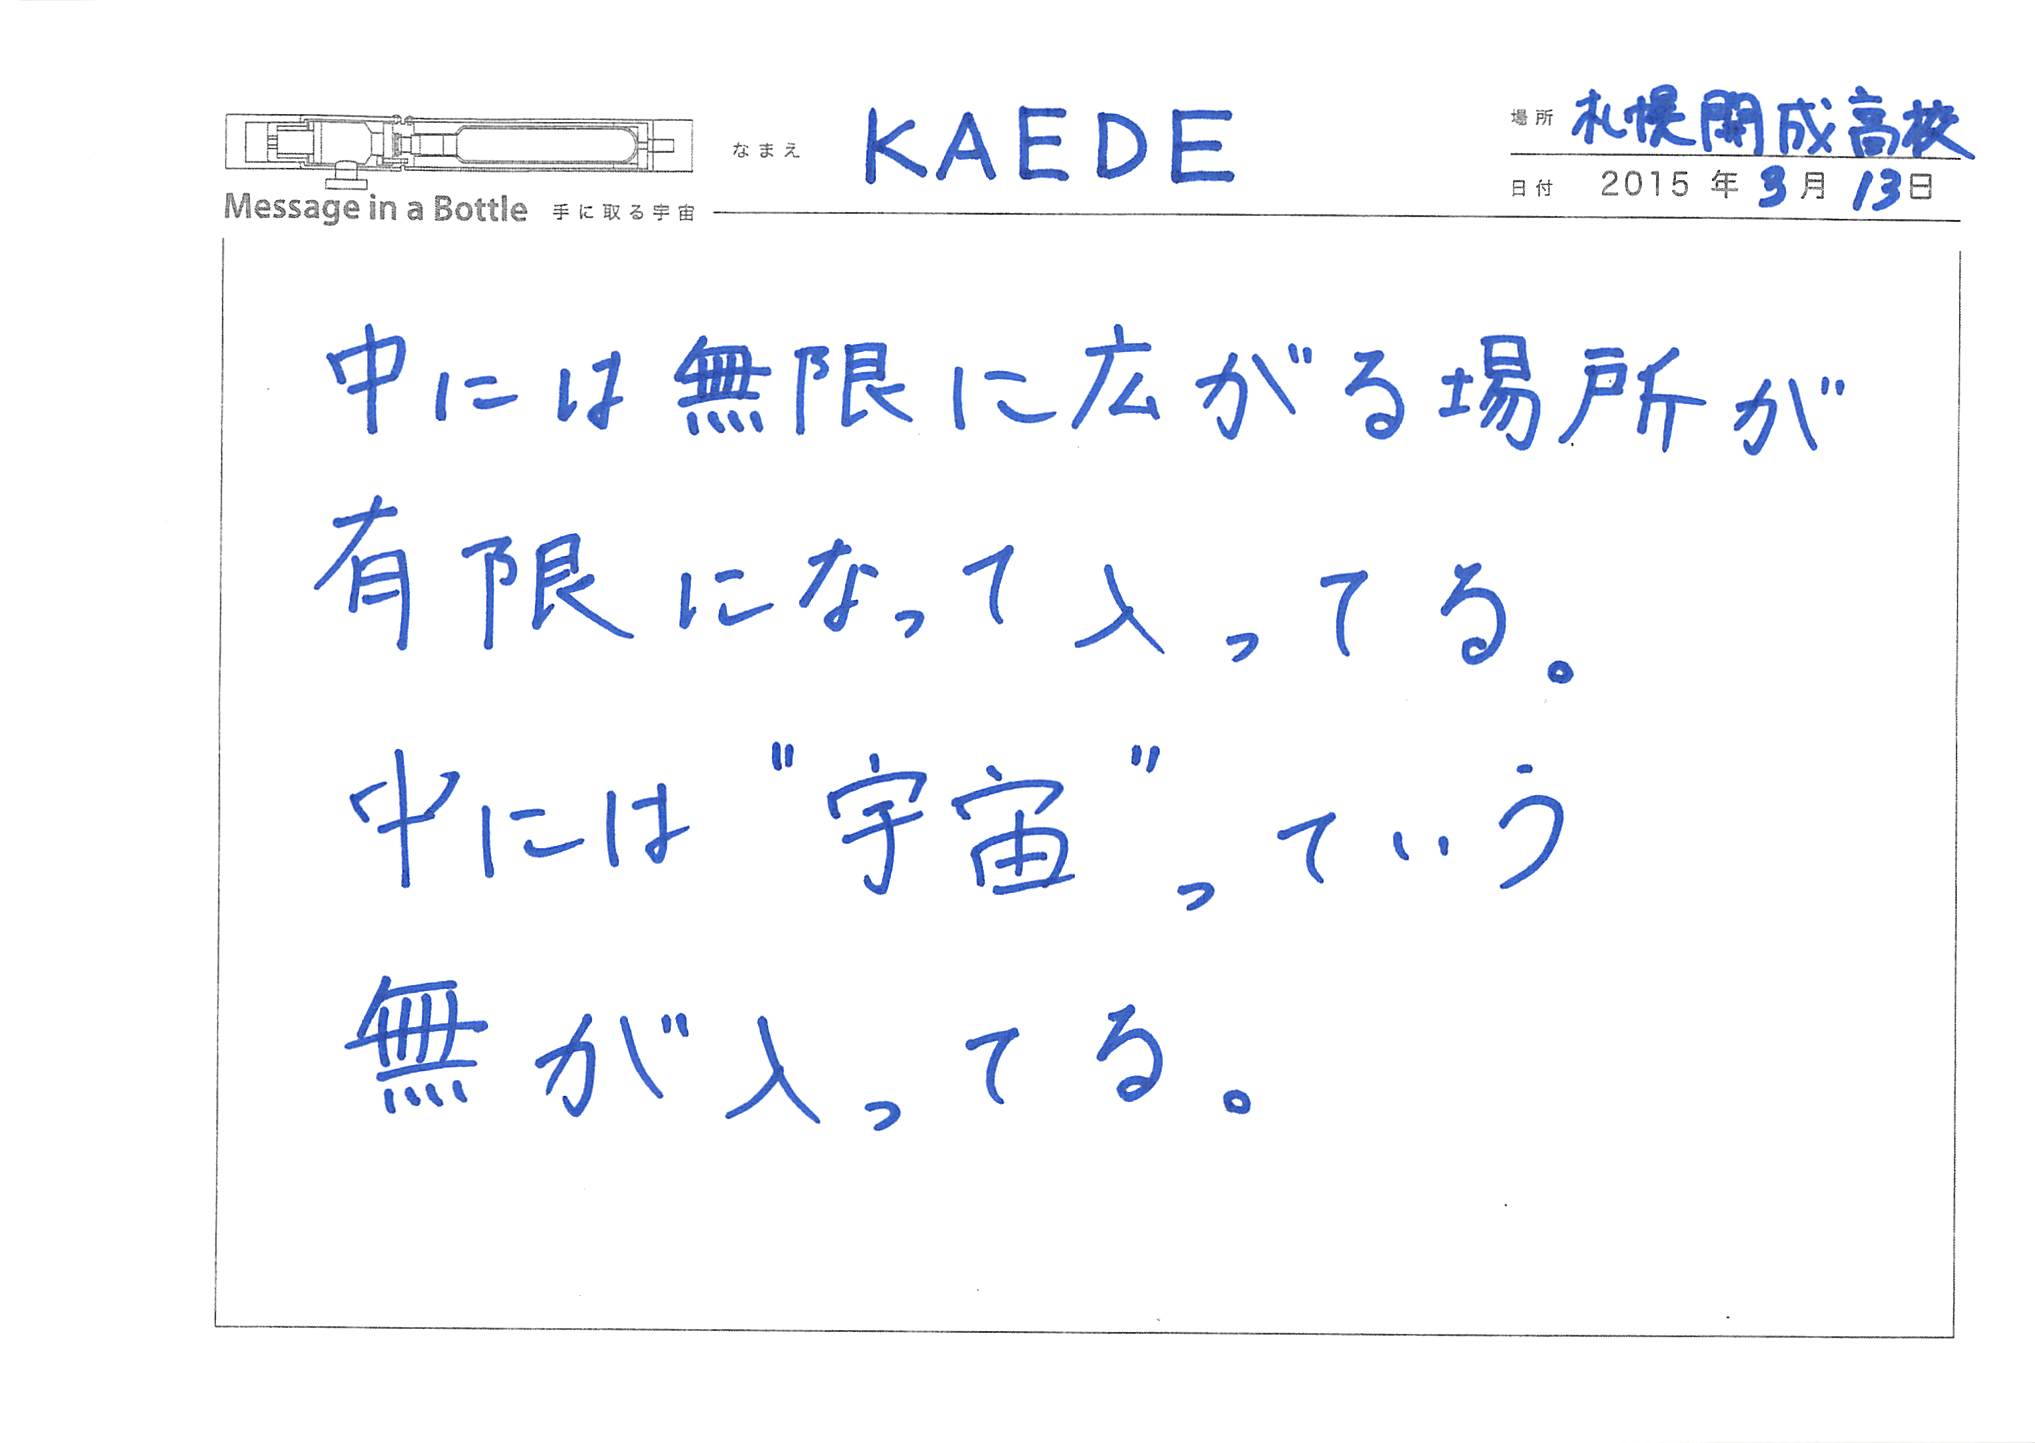 なまえ KAEDE
場所 札幌開成高校
日付 2015年3月13日
Message in a Bottle 手に取る宇宙
中には無限に広がる場所が
有限になって入ってる。
中には"宇宙"っていう
無が入ってる。